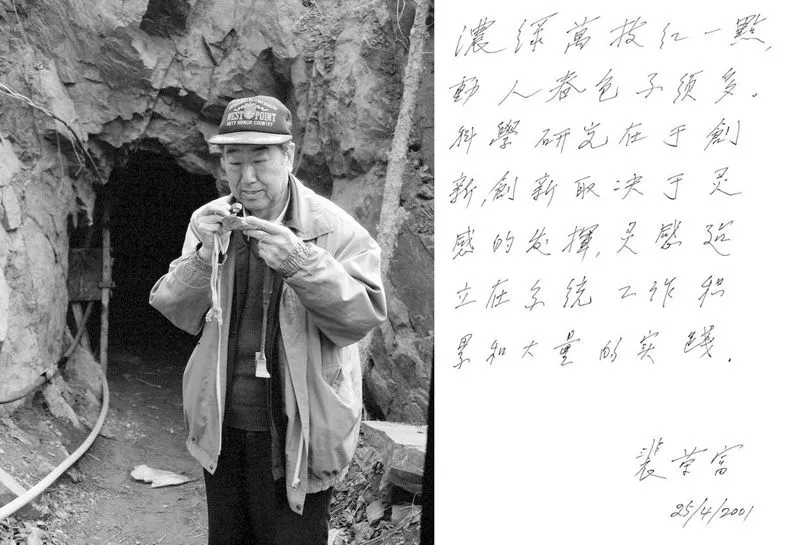 WEST POINT
DUTY HONOR COUNTRY
濃绿萬枝红一點,
動人春色不须多.
科學研究在于創
新,創新取决于灵
感的发揮,灵感建
立在系统工作积
累和大量的实踐.
裴荣富
25/4/2001